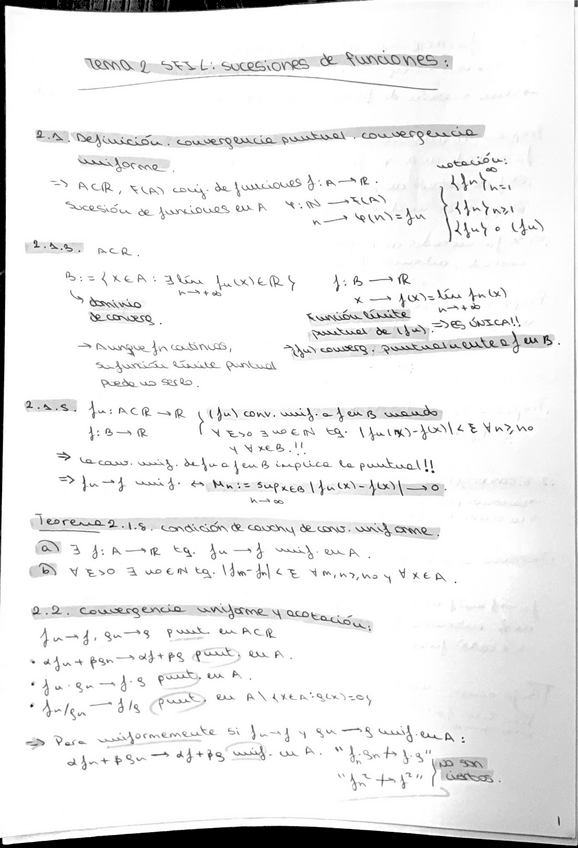 Tema 2 SFIL: sucesiones de funciones:
2.1. Definición. convergencia puntual. convergencia
uniforme.
⇒ A⊂R, F(A) conj. de funciones f: A → R.
sucesión de funciones en A φ: N → F(A)
n → φ(n) = fn
notación:
{fn}∞n=1
{fn}n≥1
{fn} o (fn)
2.1.3. A⊂R.
B := {x∈A : ∃ lím n→+∞ fn(x) ∈ R}
↳ dominio
de converg.
f: B → R
x → f(x) = lím n→+∞ fn(x)
Función límite
puntual de (fn). ⇒ ES ÚNICA!!
⇒ (fn) converg. puntualmente a f en B.
→ Aunque fn continuas,
su función límite puntual
puede no serlo.
2.1.5. fn: A⊂R → R
f: B → R
(fn) conv. unif. a f en B cuando
∀ε>0 ∃ n0∈N tq. |fn(x)-f(x)| < ε ∀n≥n0
y ∀x∈B.!!
⇒ La conv. unif. de fn a f en B implica la puntual!!
⇒ fn → f unif. ↔ Mn := sup x∈B |fn(x)-f(x)| → 0.
n→∞
Teorema 2.1.8. condición de cauchy de conv. uniforme.
a) ∃ f: A → R tq. fn → f unif. en A.
b) ∀ε>0 ∃ n0∈N tq. |fm-fn| < ε ∀m,n≥n0 y ∀x∈A.
2.2. Convergencia uniforme y acotación:
fn → f, gn → g punt en A⊂R
• αfn + βgn → αf + βg punt. en A.
• fn · gn → f · g punt. en A.
• fn/gn → f/g punt. en A \ {x∈A: g(x)=0}
⇒ Para uniformemente si fn → f y gn → g unif. en A:
αfn + βgn → αf + βg unif. en A. "fn·gn ↛ f·g"
"fn² ↛ f²"
no son
ciertos.
1